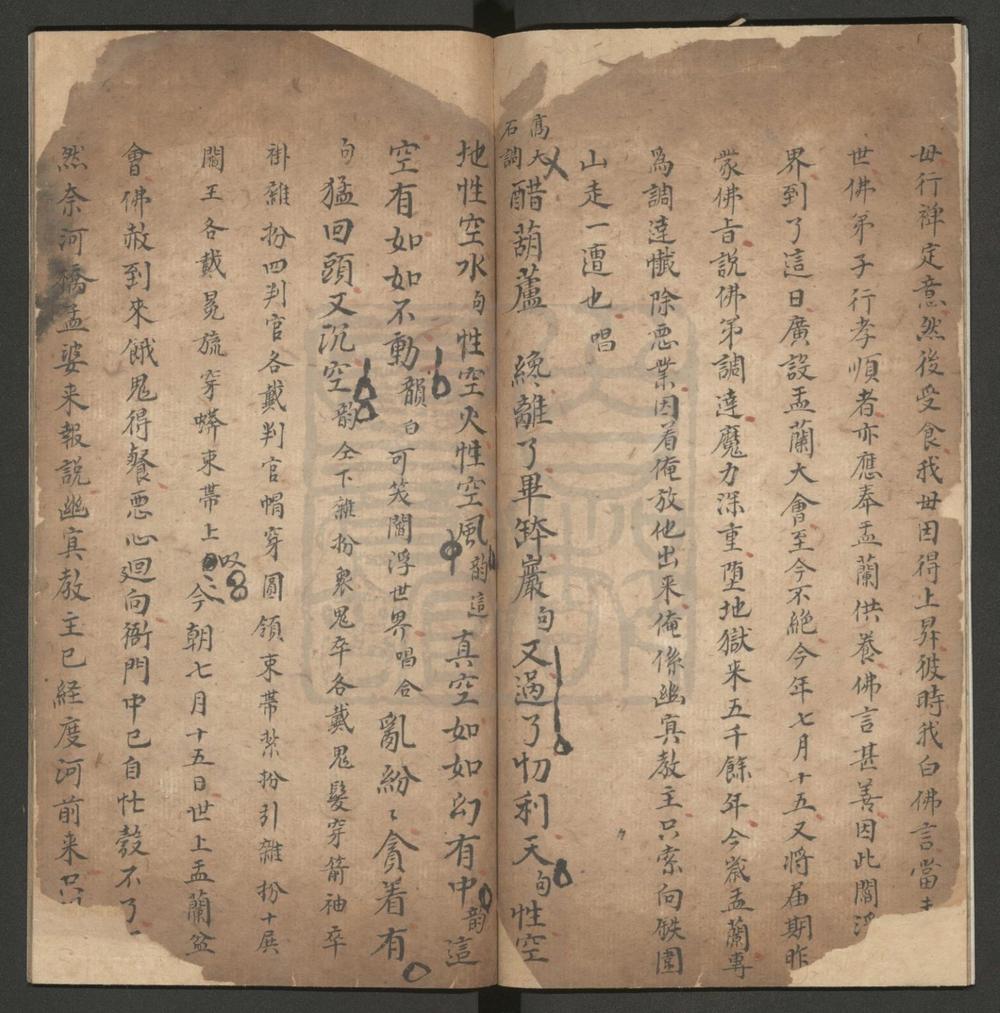 毋行禪定意然後受食我毋因得上昇彼時我白佛言當
世佛弟子行孝順者亦應奉盂蘭供養佛言甚善因此閻浮
界到了這日廣設盂蘭大會至今不絶今年七月十五又將届期昨
蒙佛旨説佛弟調達魔力深重堕地獄来五千餘年今歲盂蘭專
爲調達懺除悪業因着俺放他出来俺係幽冥教主只索向鉄圍
山走一遭也 唱
高大
石調
醋葫蘆 纔離了畢鉢巖句又過了忉利天句性空
地性空水句性空火性空風韵這真空如如幻有中韵這
空有如如不動韻白可笑閻浮世界唱合亂紛〻貪着有
句猛回頭又沉空韵仝下雜扮衆鬼卒各戴鬼髮穿箭袖卒
褂雜扮四判官各戴判官帽穿圓領束帶雜扮引雜扮十殿
閻王各戴冕旒穿蟒束帶上 今朝七月十五日世上盂蘭盆
會佛赦到來餓鬼得餐悪心迴向衙門中已自忙教不了
然奈河橋孟婆来報説幽冥教主已経度河前来只